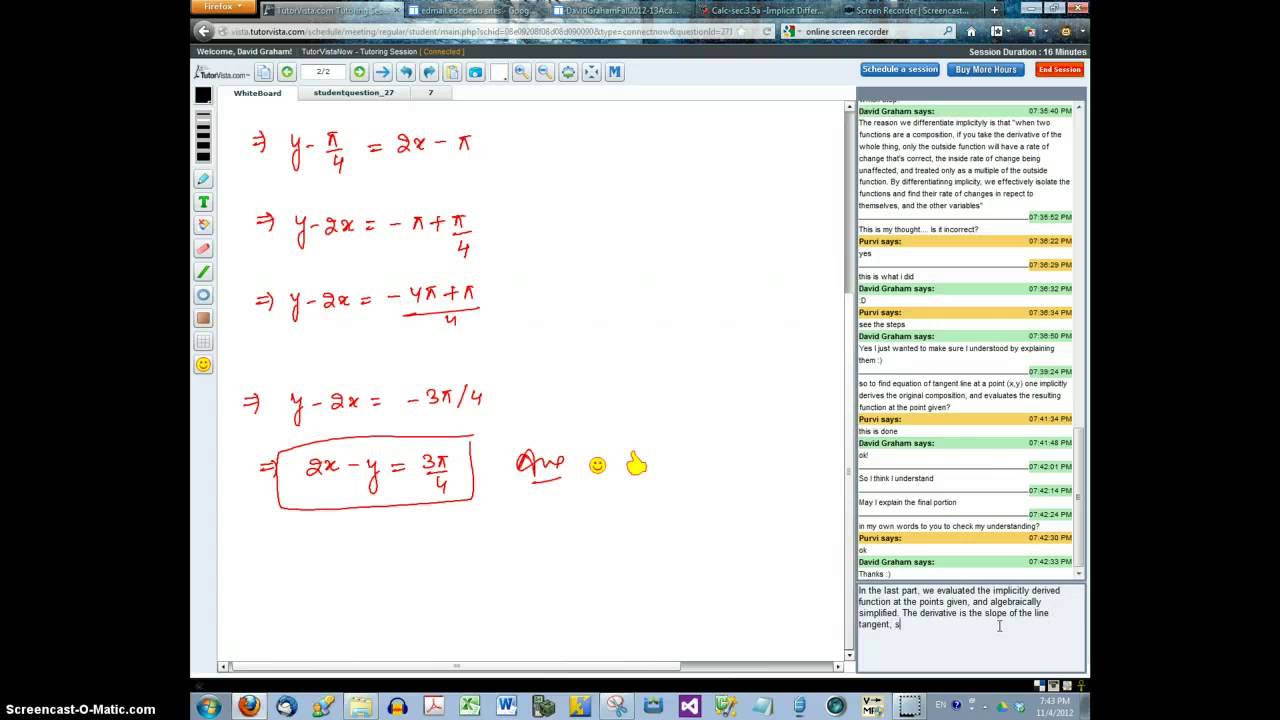 Firefox
TutorVista.com Tutoring Sessi...
edmail.edcc.edu sites - Goog...
DavidGrahamFall2012-13Aca...
Calc-sec.3.5a -Implicit Differ...
Screen Recorder | Screencast...
www.tutorvista.com/schedule/meeting/regular/student/main.php?schid=08e09208f08d08d090090&type=connectnow&questionId=271
online screen recorder
Welcome, David Graham! TutorVistaNow - Tutoring Session [ Connected ]
Session Duration : 16 Minutes
TutorVista.com
2/2
M
Schedule a session
Buy More Hours
End Session
WhiteBoard
studentquestion_27
7
⇒ y - π/4 = 2x - π
⇒ y - 2x = - π + π/4
⇒ y - 2x = - 4π + π/4
⇒ y - 2x = - 3π/4
⇒ 2x - y = 3π/4 Ans
T
David Graham says: 07:35:40 PM
The reason we differentiate implicityly is that "when two
functions are a composition, if you take the derivative of the
whole thing, only the outside function will have a rate of
change that's correct, the inside rate of change being
unaffected, and treated only as a multiple of the outside
function. By differentiating implicity, we effectively isolate the
functions and find their rate of changes in repect to
themselves, and the other variables"
07:36:52 PM
This is my thought.... Is it incorrect?
Purvi says: 07:36:22 PM
yes
07:36:29 PM
this is what i did
David Graham says: 07:36:32 PM
:D
Purvi says: 07:36:34 PM
see the steps
David Graham says: 07:36:50 PM
Yes I just wanted to make sure I understood by explaining
them :)
07:39:24 PM
so to find equation of tangent line at a point (x,y) one implicitly
derives the original composition, and evaluates the resulting
function at the point given?
Purvi says: 07:41:34 PM
this is done
David Graham says: 07:41:48 PM
ok!
07:42:01 PM
So I think I understand
07:42:14 PM
May I explain the final portion
07:42:24 PM
in my own words to you to check my understanding?
Purvi says: 07:42:30 PM
ok
David Graham says: 07:42:33 PM
Thanks :)
In the last part, we evaluated the implicitly derived
function at the points given, and algebraically
simplified. The derivative is the slope of the line
tangent, s
EN
7:43 PM
11/4/2012
Screencast-O-Matic.com